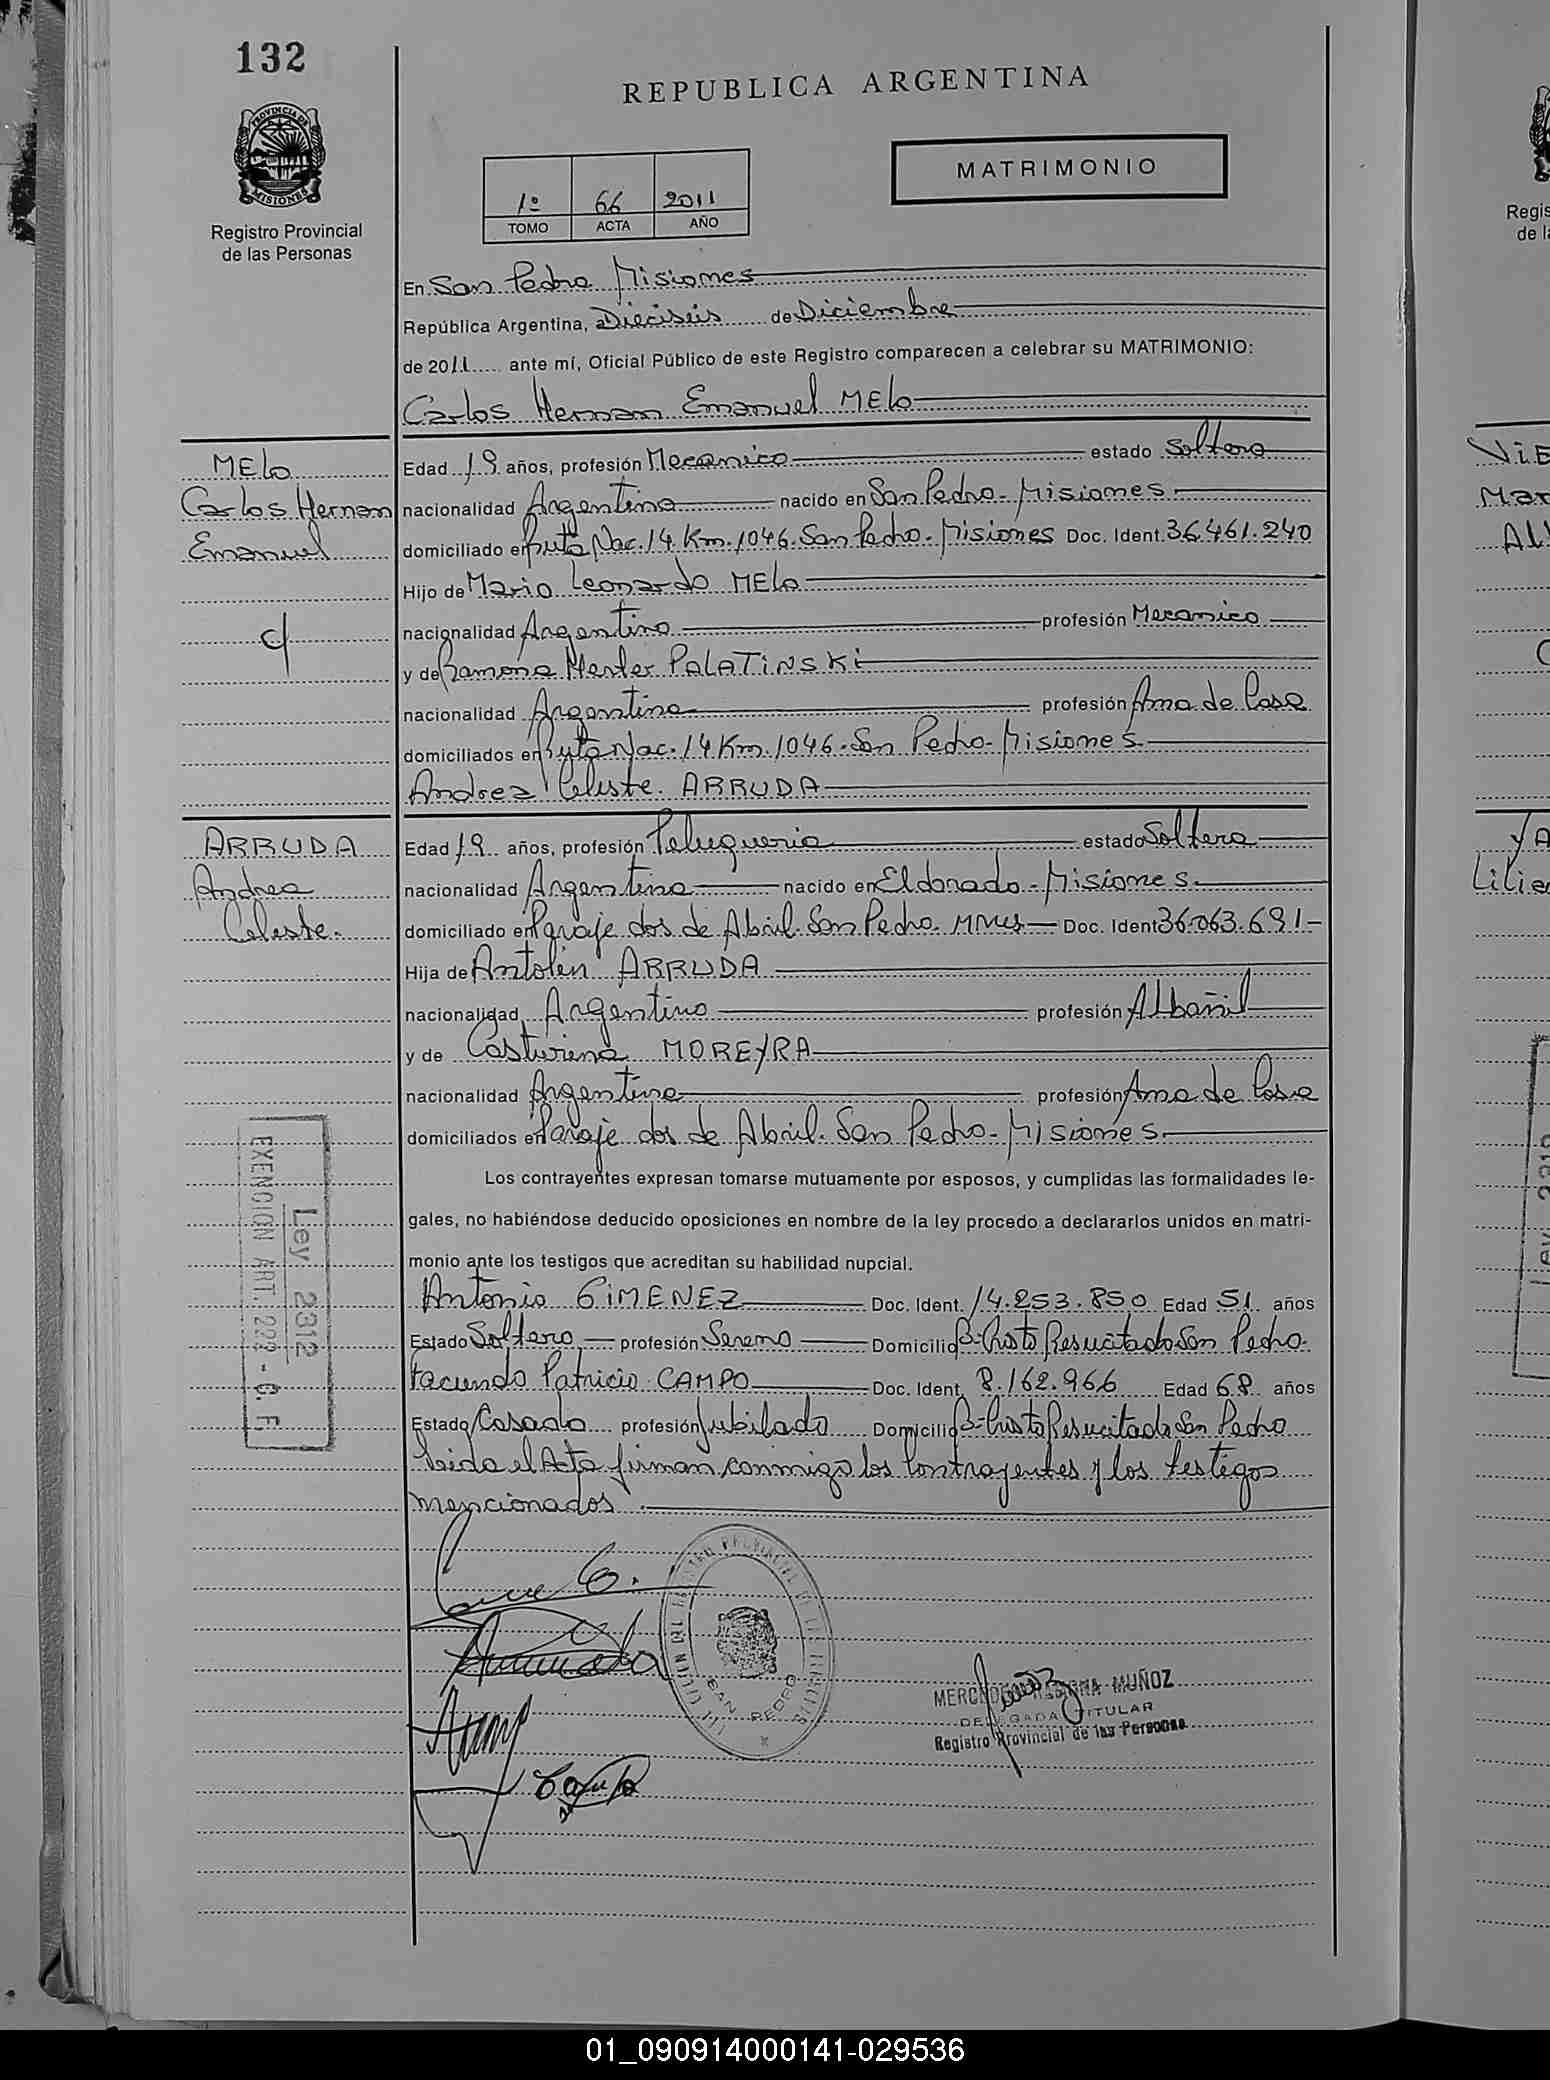 132
REPUBLICA ARGENTINA
PROVINCIA DE
MISIONES
Registro Provincial
de las Personas
MATRIMONIO
1º 66 2011
TOMO ACTA AÑO
En San Pedro Misiones
República Argentina, a Dieciséis de Diciembre
de 2011 ante mí, Oficial Público de este Registro comparecen a celebrar su MATRIMONIO:
Carlos Hernan Emanuel MELO
MELO
Carlos Hernan
Emanuel
c/
Edad 19 años, profesión Mecanico estado Soltero
nacionalidad Argentina nacido en San Pedro - Misiones
domiciliado en Ruta Nac. 14 Km. 1046. San Pedro - Misiones Doc. Ident. 36.461.240
Hijo de Mario Leonardo MELO
nacionalidad Argentino profesión Mecanico
y de Ramona PALATINSKI
nacionalidad Argentina profesión Ama de Casa
domiciliados en Ruta Nac. 14 Km. 1046. San Pedro - Misiones
Andrea Celeste ARRUDA
ARRUDA
Andrea
Celeste.
Edad 19 años, profesión Peluqueria estado Soltera
nacionalidad Argentina nacido en Eldorado - Misiones
domiciliado en Paraje dos de Abril. San Pedro. Mnes Doc. Ident 36.063.691-
Hija de Antolin ARRUDA
nacionalidad Argentino profesión Albañil
y de Casturina MOREYRA
nacionalidad Argentina profesión Ama de Casa
domiciliados en Paraje dos de Abril. San Pedro - Misiones
Los contrayentes expresan tomarse mutuamente por esposos, y cumplidas las formalidades le-
gales, no habiéndose deducido oposiciones en nombre de la ley procedo a declararlos unidos en matri-
monio ante los testigos que acreditan su habilidad nupcial.
Ley 2312
EXENCION ART. 222 - C. F.
Antonio GIMENEZ Doc. Ident. 14.253.850 Edad 51 años
Estado Soltero profesión Sereno Domicilio Bº Cristo Resucitado San Pedro.
Facundo Patricio CAMPO Doc. Ident. 8.162.966 Edad 68 años
Estado Casado profesión Jubilado Domicilio Bº Cristo Resucitado San Pedro
Leida el Acta firman conmigo los contrayentes y los testigos
mencionados.
SAN PEDRO
MUÑOZ
DELEGADA TITULAR
Registro Provincial de las Personas
Regis
de la
VIE
Mar
YA
01_090914000141-029536